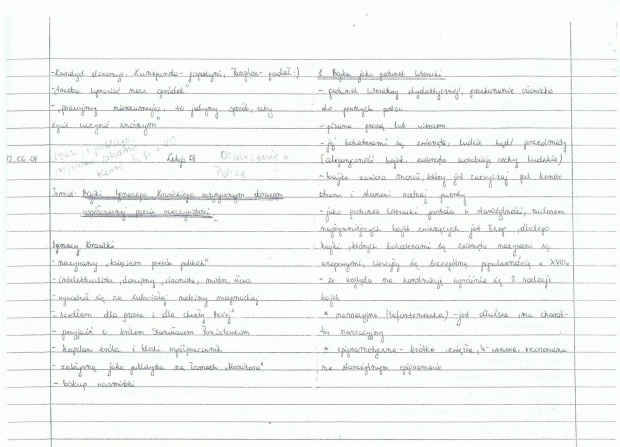 - Kandyd dziczeje, Kunegunda - , Pangloss - gadał :)
- "trzeba uprawiać nasz ogródek"
- "pracujmy nierozumując, to jedyny sposób, aby
życie uczynić znośnym"
12.06.08
Lekcja 58
Oświecenie w
Polsce
Temat: Bajki Ignacego Krasickiego satyrycznym obrazem
współczesnej poecie rzeczywistości
Ignacy Krasicki
- nazywany "księciem poetów polskich"
- intelektualista, dowcipny, mistrz słowa
- wywodził się ze zubożałej rodziny magnackiej
- "szedłem dla grosza i dla chwały bożej"
- przyjaźń z królem Stanisławem Poniatowskim
- kapelan króla i bliski współpracownik
- jako publicysta na łamach "Monitora"
- biskup warmiński
1. Bajka jako gatunek literacki
- gatunek literatury dydaktycznej, przekonanie człowieka
do pewnych postaw
- pisana prozą lub wierszem
- jej bohaterami są zwierzęta, ludzie bądź przedmioty
(alegoryczność bajek, zwierzęta uosabiają cechy ludzkie)
- bajka zawiera morał, który jest zazwyczaj pod koniec
utworu i stanowi rodzaj puenty
- jako gatunek literacki powstała w starożytności, autorem
bajek zwierzęcych jest Ezop, dlatego
bajki, których bohaterami są zwierzęta nazywane są
ezopowymi, cieszyły się szczególną popularnością w XVIII w
- ze względu na konstrukcję wyróżnia się 2 rodzaje
bajek
* narracyjna (lafontenowska) - jest dłuższa, ma charak-
ter narracyjny
* epigramatyczna - krótka, zwięzła, 4-wersowa, wzorowana
na starożytnym epigramacie